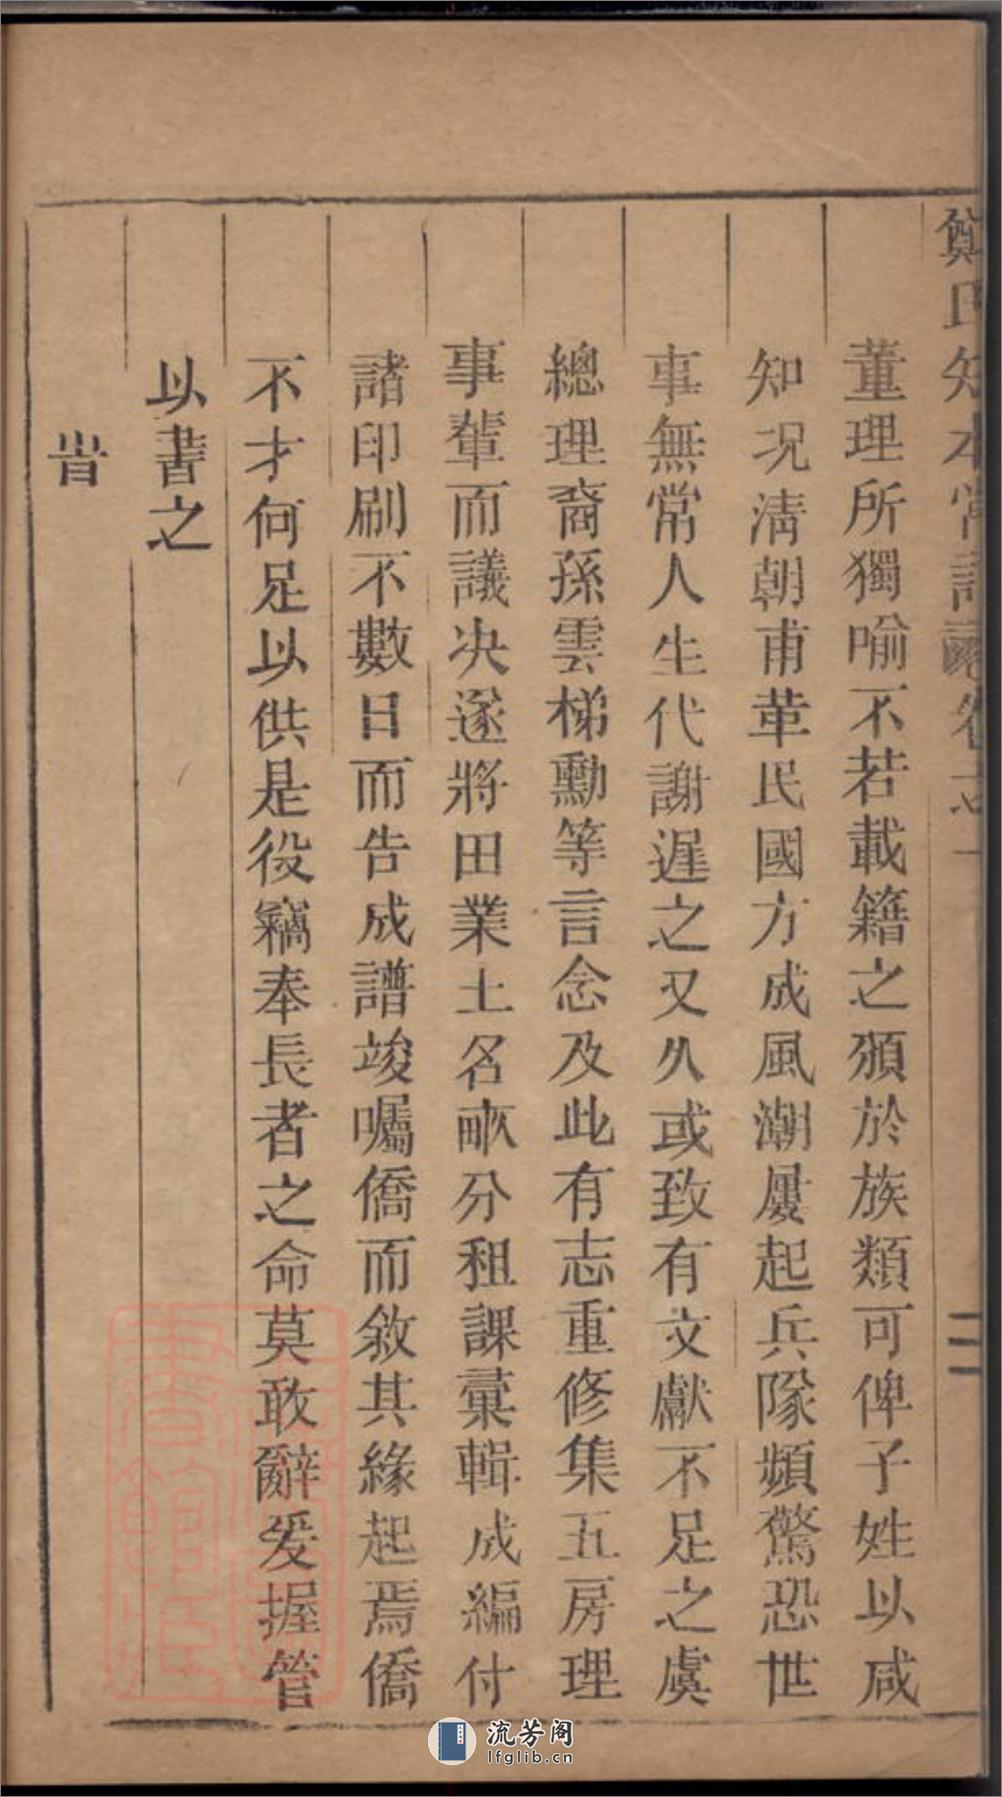 董理所獨喻不若載籍之頒於族類可俾子姓以咸
知况淸朝甫革民國方成風潮屢起兵隊頻驚恐世
事無常人生代謝遲之又久或致有文獻不足之虞
總理裔孫雲梯勳等言念及此有志重修集五房理
事輩而議决遂將田業土名畝分租課彙輯成編付
諸印刷不數日而告成譜竣囑僑而敘其緣起焉僑
不才何足以供是役竊奉長者之命莫敢辭爰握管
以書之
旹
流芳阁
lfglib.cn